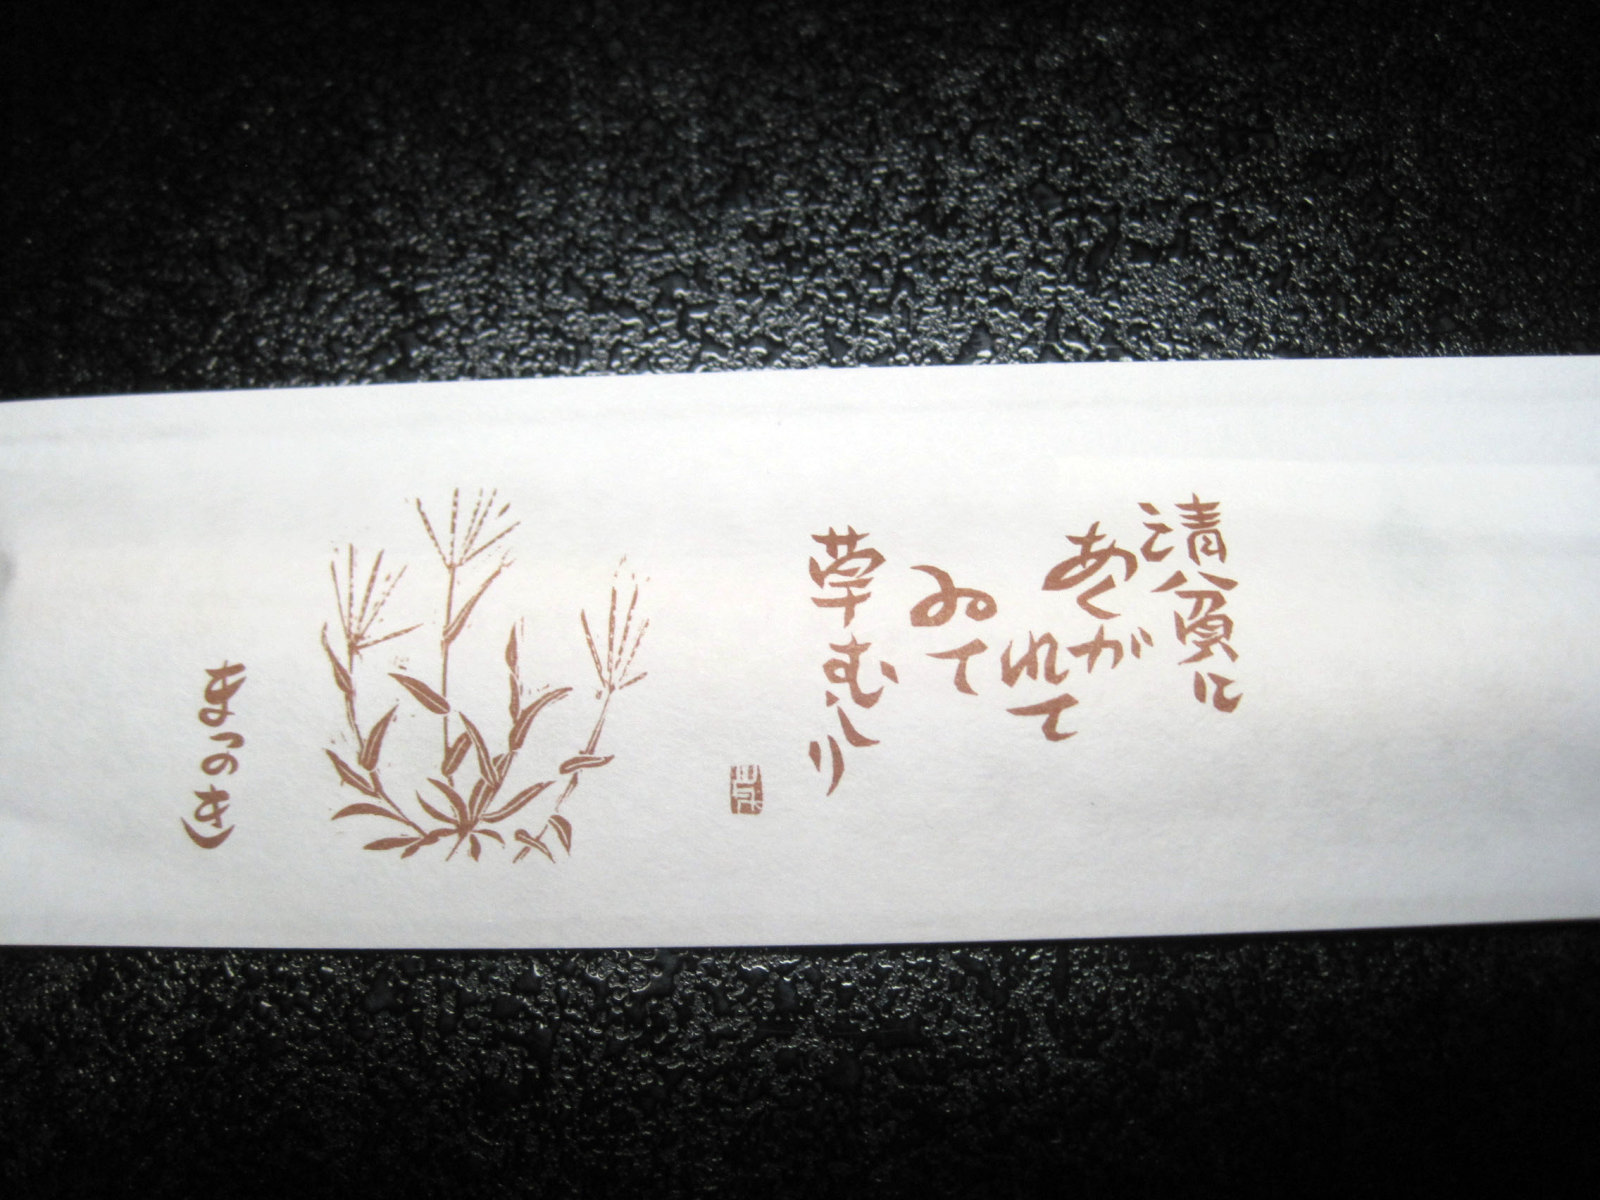 清貧に
あくがれて
ゐて
草むしり
まつのき